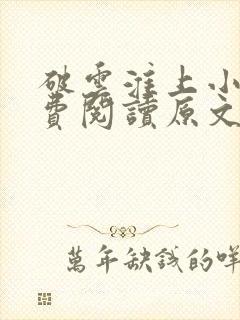 破雲淮上小
費閱讀原文
萬年缺錢的咩